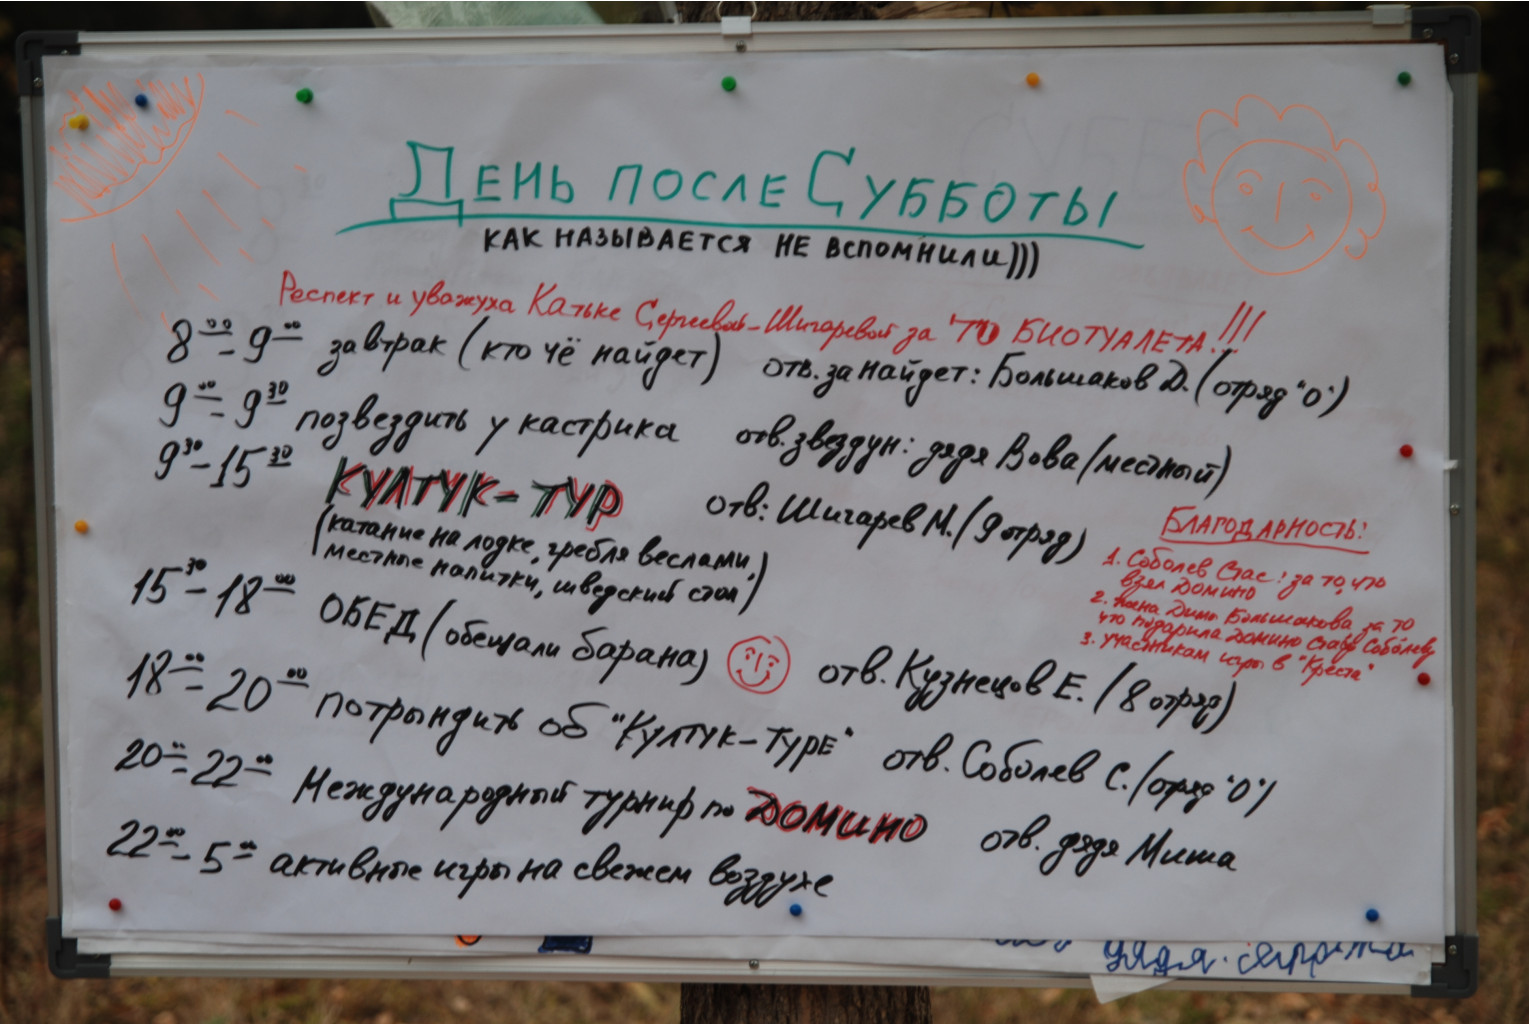 День после Субботы
как называется не вспомнили)))
Респект и уважуха Катьке Сергеевой-Шигаревой за ТО БИОТУАЛЕТА!!!
8 00 - 9 00 завтрак (кто чё найдет) отв. за найдет: Большаков Д. (отряд "О")
9 00 - 9 30 позвездить у кастрика отв. звездун: дядя Вова (местный)
9 30 - 15 30 КУЛТУК-ТУР отв: Шигарев М. (9 отряд)
(катание на лодке, гребля веслами,
местные напитки, шведский стол)
Благодарность:
1. Соболев Стас: за то, что
взял Домино
2. жена Димы Большакова за то
что подарила Домино Стасу Соболеву
3. участникам игры в "Креста"
15 30 - 18 00 ОБЕД (обещали барана) отв. Кузнецов Е. (8 отряд)
18 00 - 20 00 потрындить об "Култук-Туре" отв. Соболев С. (отряд "О")
20 00 - 22 00 Международный турнир по ДОМИНО отв. дядя Миша
22 00 - 5 00 активные игры на свежем воздухе
дядя